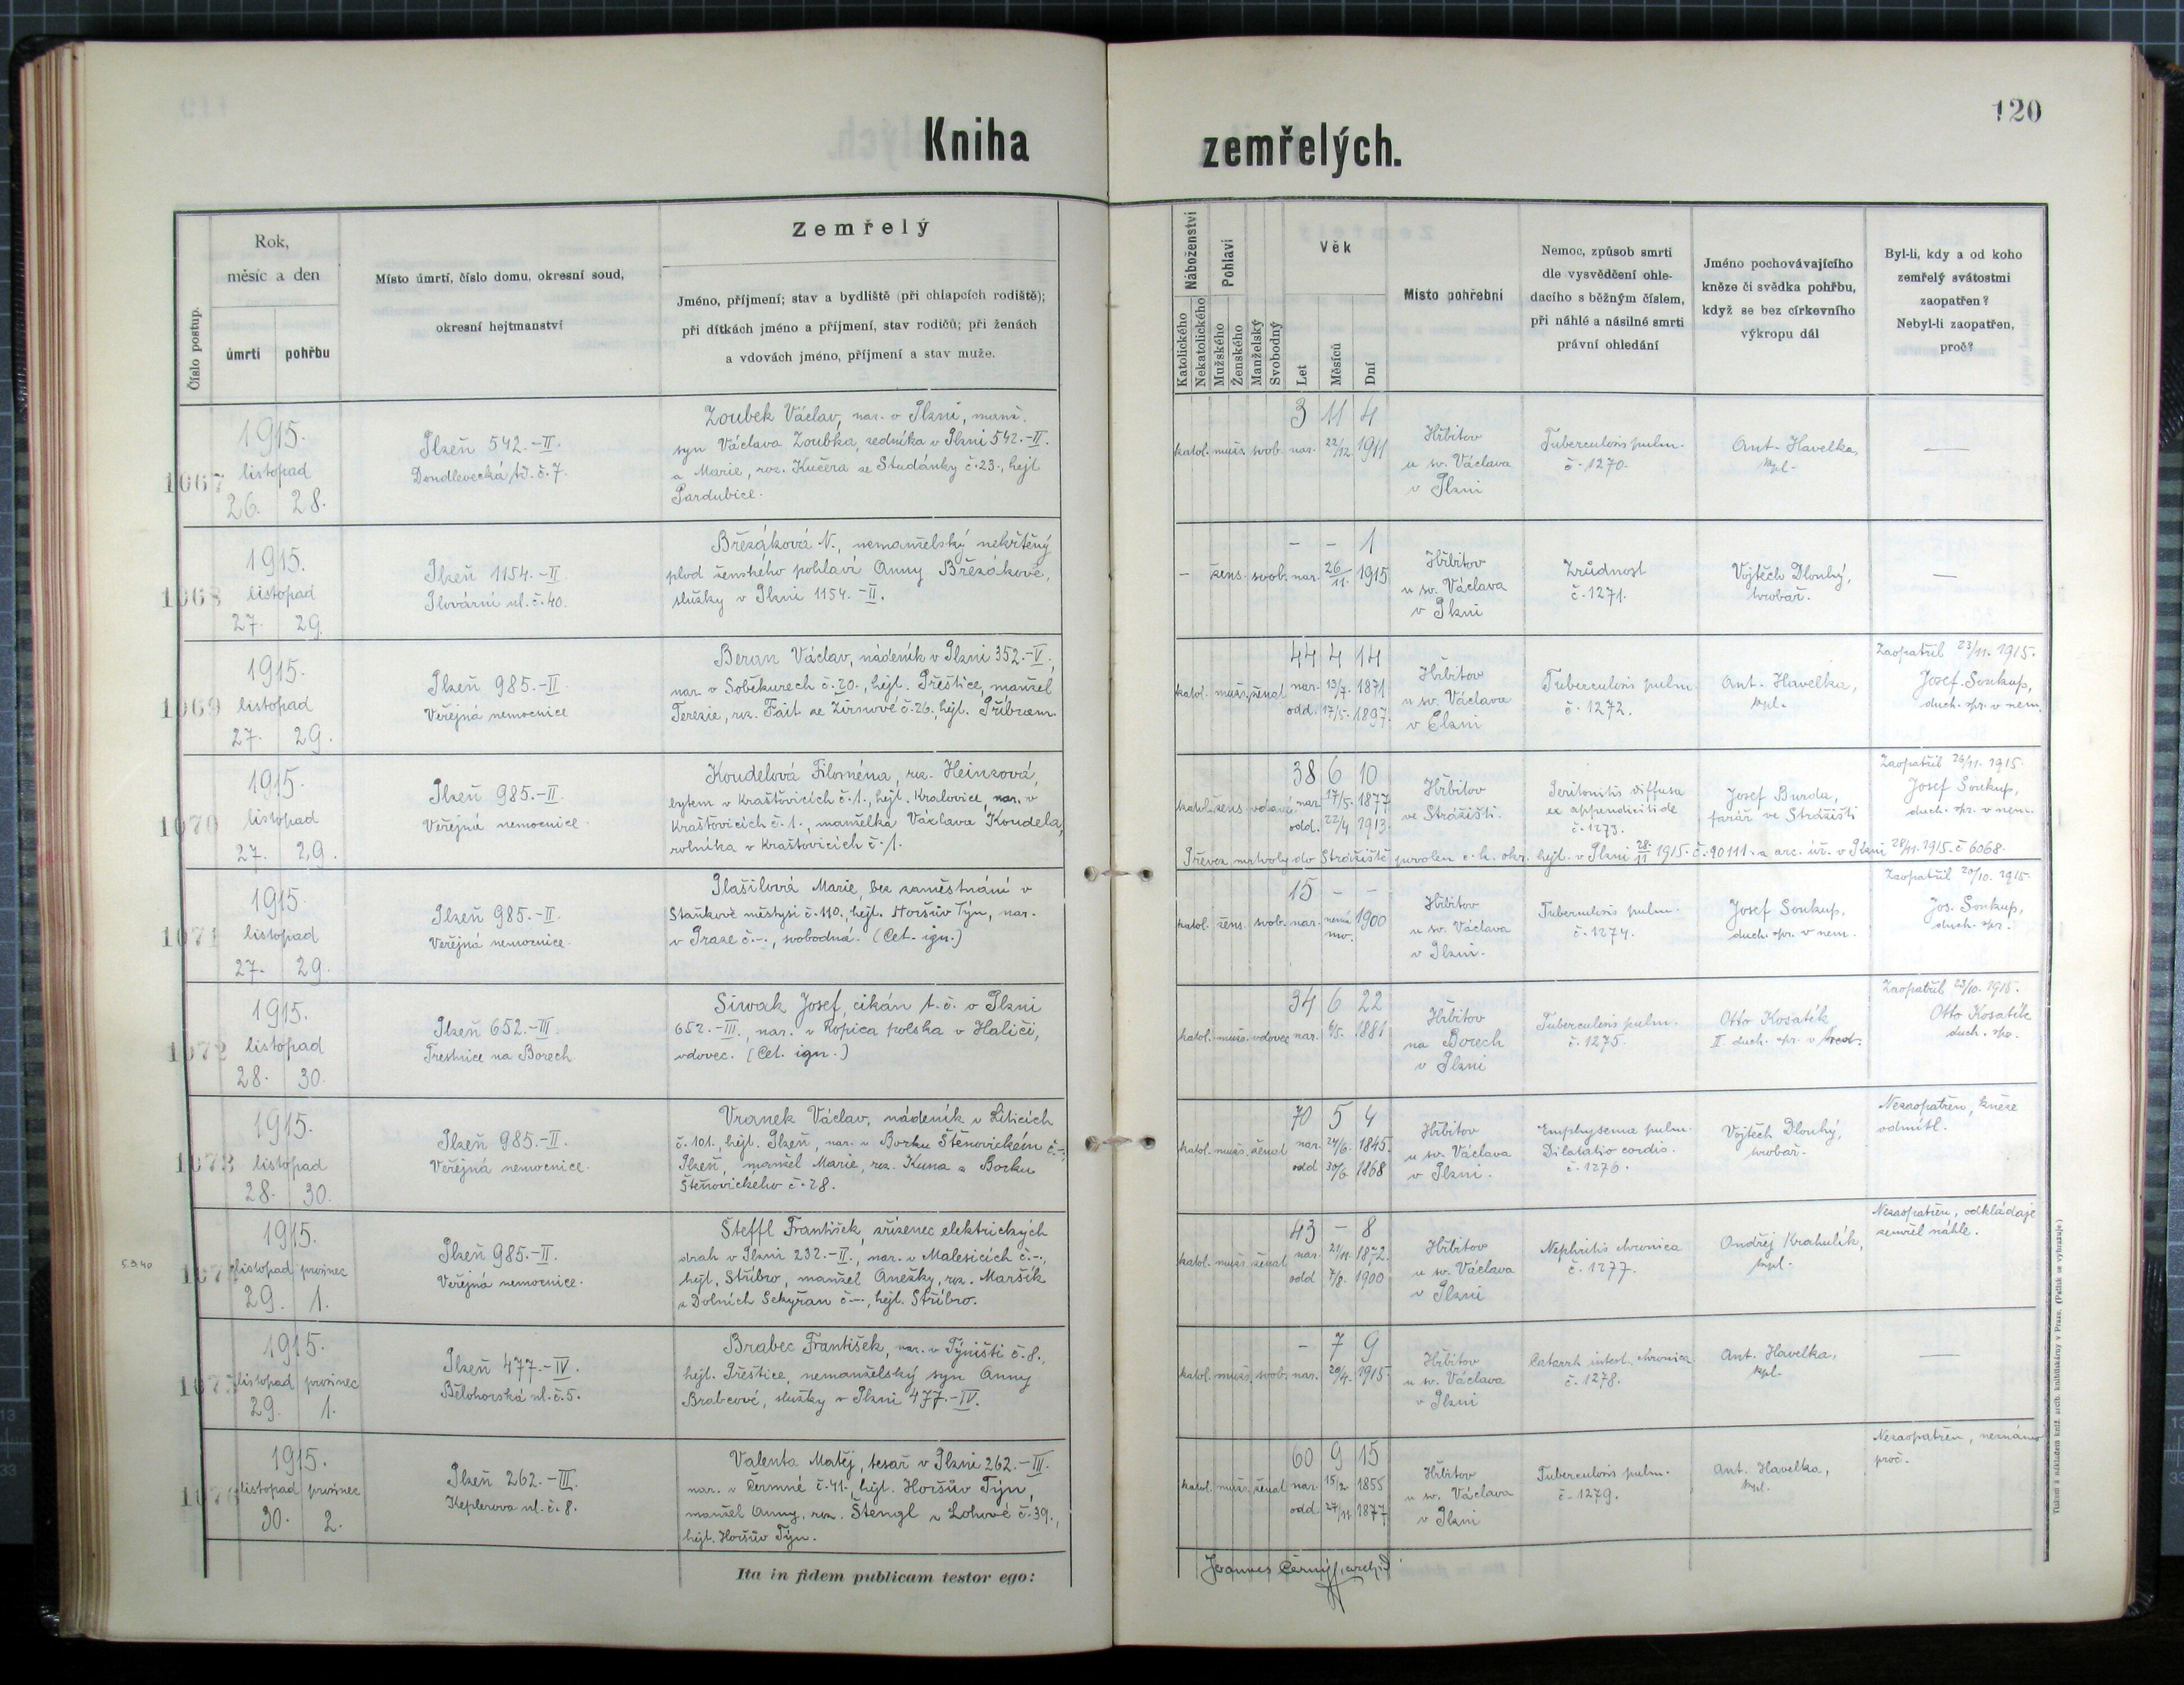 120
Kniha zemřelých.
Číslo postup.
Rok,
měsíc a den
úmrtí
pohřbu
Místo úmrtí, číslo domu, okresní soud,
okresní hejtmanství
Zemřelý
Jméno, příjmení; stav a bydliště (při chlapcích rodiště);
při dítkách jméno a příjmení, stav rodičů; při ženách
a vdovách jméno, příjmení a stav muže.
Náboženství
Katolického
Nekatolického
Pohlaví
Mužského
Ženského
Manželský
Svobodný
Věk
Let
Měsíců
Dní
Místo pohřební
Nemoc, způsob smrti
dle vysvědčení ohle-
dacího s běžným číslem,
při náhlé a násilné smrti
právní ohledání
Jméno pochovávajícího
kněze či svědka pohřbu,
když se bez církevního
výkropu dál
Byl-li, kdy a od koho
zemřelý svátostmi
zaopatřen?
Nebyl-li zaopatřen,
proč?
1067
1915.
listopad
26. 28.
Plzeň 542.-II.
Doudlevecká tř. č. 7.
Zoubek Václav, nar. v Plzni, manž.
syn Václava Zoubka, zedníka v Plzni 542.-II.
a Marie, roz. Kučera ze Studánky č. 23., hejt.
Pardubice.
3 11 4
katol. mužs. svob. nar. 22/12. 1911
Hřbitov
u sv. Václava
v Plzni
Tuberculosis pulm.
č. 1270.
Ant. Havelka,
kpl.
—
1068
1915.
listopad
27. 29.
Plzeň 1154.-II
Plovární ul. č. 40.
Březáková N., nemanželský nekřtěný
plod ženského pohlaví Anny Březákové,
služky v Plzni 1154.-II.
- - 1
- žens. svob. nar. 26/11. 1915
Hřbitov
u sv. Václava
v Plzni
Zrůdnost
č. 1271.
Vojtěch Dlouhý,
hrobař.
—
1069
1915.
listopad
27. 29.
Plzeň 985.-II
Veřejná nemocnice
Beran Václav, nádeník v Plzni 352.-V.,
nar. v Soběkurech č. 20., hejt. Přeštice, manžel
Terezie, roz. Fait ze Žirnové č. 26., hejt. Příbram.
44 4 14
katol. mužs. ženat nar. 13/7. 1871
odd. 17/5. 1897.
Hřbitov
u sv. Václava
v Plzni
Tuberculosis pulm.
č. 1272.
Ant. Havelka,
kpl.
Zaopatřil 23/11. 1915.
Josef Soukup,
duch. spr. v nem.
1070
1915.
listopad
27. 29.
Plzeň 985.-II
Veřejná nemocnice.
Koudelová Filoména, roz. Heinzová,
bytem v Kraštovicích č. 1., hejt. Kralovice, nar. v
Kraštovicích č. 1., manželka Václava Koudela,
rolníka v Kraštovicích č. 1.
38 6 10
katol. žens. vdaná nar. 17/5. 1877
odd. 22/4 1913.
Hřbitov
ve Strážišti.
Peritonitis diffusa
ex appendicitide
č. 1273.
Josef Burda,
farář ve Strážišti
Zaopatřil 26/11. 1915.
Josef Soukup,
duch. spr. v nem.
Převoz mrtvoly do Strážiště povolen c. k. okr. hejt. v Plzni 28./11 1915. č. 90111. a arc. úř. v Plzni 28/11. 1915. č 6068.
1071
1915.
listopad
27. 29.
Plzeň 985.-II
Veřejná nemocnice.
Plašilová Marie, bez zaměstnání v
Staňkově městysi č. 110., hejt. Horšův Týn, nar.
v Praze č.-., svobodná. (Cet. ign.)
15 - -
katol. žens. svob. nar. nezná- mo. 1900
Hřbitov
u sv. Václava
v Plzni.
Tuberculosis pulm.
č. 1274.
Josef Soukup,
duch. spr. v nem.
Zaopatřil 20/10. 1915.
Jos. Soukup,
duch. spr.
1072
1915.
listopad
28. 30.
Plzeň 652.-III.
Trestnice na Borech.
Siwak Josef, cikán t. č. v Plzni
652.-III., nar. v Kopica polska v Haliči,
vdovec. (Cet. ign.)
34 6 22
katol. mužs. vdovec nar. 6/5. 1881
Hřbitov
na Borech
v Plzni
Tuberculosis pulm.
č. 1275.
Otto Kosatík
II. duch. spr. v trest.
Zaopatřil 23/10. 1915.
Otto Kosatík
duch. spr.
1073
1915.
listopad
28. 30.
Plzeň 985.-II.
Veřejná nemocnice.
Vranek Václav, nádeník v Liticích
č. 101., hejt. Plzeň, nar. v Borku Štěnovickém č.-.,
Plzeň, manžel Marie, roz. Kuna z Borku
Štěnovického č. 28.
70 5 4
katol. mužs. ženat nar. 24/6. 1845.
odd 30/6. 1868
Hřbitov
u sv. Václava
v Plzni.
Emphysema pulm.
Dilatatio cordis.
č. 1276.
Vojtěch Dlouhý,
hrobař.
Nezaopatřen, kněze
odmítl.
1074
1915.
listopad prosinec
29. 1.
Plzeň 985.-II.
Veřejná nemocnice.
Šteffl František, zřízenec elektrických
drah v Plzni 232.-II., nar. v Malesicích č.-.,
hejt. Stříbro, manžel Anežky, roz. Maršík
z Dolních Sekyřan č.-., hejt. Stříbro.
43 - 8
katol. mužs. ženat nar. 21/11. 1872.
odd 7/8. 1900
Hřbitov
u sv. Václava
v Plzni
Nephritis chronica
č. 1277.
Ondřej Krahulík,
kpl.
Nezaopatřen, odkládaje
zemřel náhle.
1075
1915.
listopad prosinec
29. 1.
Plzeň 477.-IV.
Bělohorská ul. č. 5.
Brabec František, nar. v Týništi č. 8.,
hejt. Přeštice, nemanželský syn Anny
Brabcové, služky v Plzni 477.-IV.
- 7 9
katol. mužs. svob. nar. 20/4. 1915.
Hřbitov
u sv. Václava
v Plzni
Catarrh intest. chronica
č. 1278.
Ant. Havelka,
kpl.
—
1076
1915.
listopad prosinec
30. 2.
Plzeň 262.-III.
Keplerova ul. č. 8.
Valenta Matěj, tesař v Plzni 262.-III.
nar. v Čermné č. 41., hejt. Horšův Týn,
manžel Anny, roz. Štengl z Lohové č. 39.,
hejt. Horšův Týn.
60 9 15
katol. mužs. ženat nar. 15/2. 1855
odd. 27/11. 1877
Hřbitov
u sv. Václava
v Plzni
Tuberculosis pulm.
č. 1279.
Ant. Havelka,
kpl.
Nezaopatřen, neznámo
proč.
Ita in fidem publicam testor ego:
Joannes Černý,
Tiskem a nákladem kníž. arcib. knihtiskárny v Praze. (Patisk se vyhrazuje.)